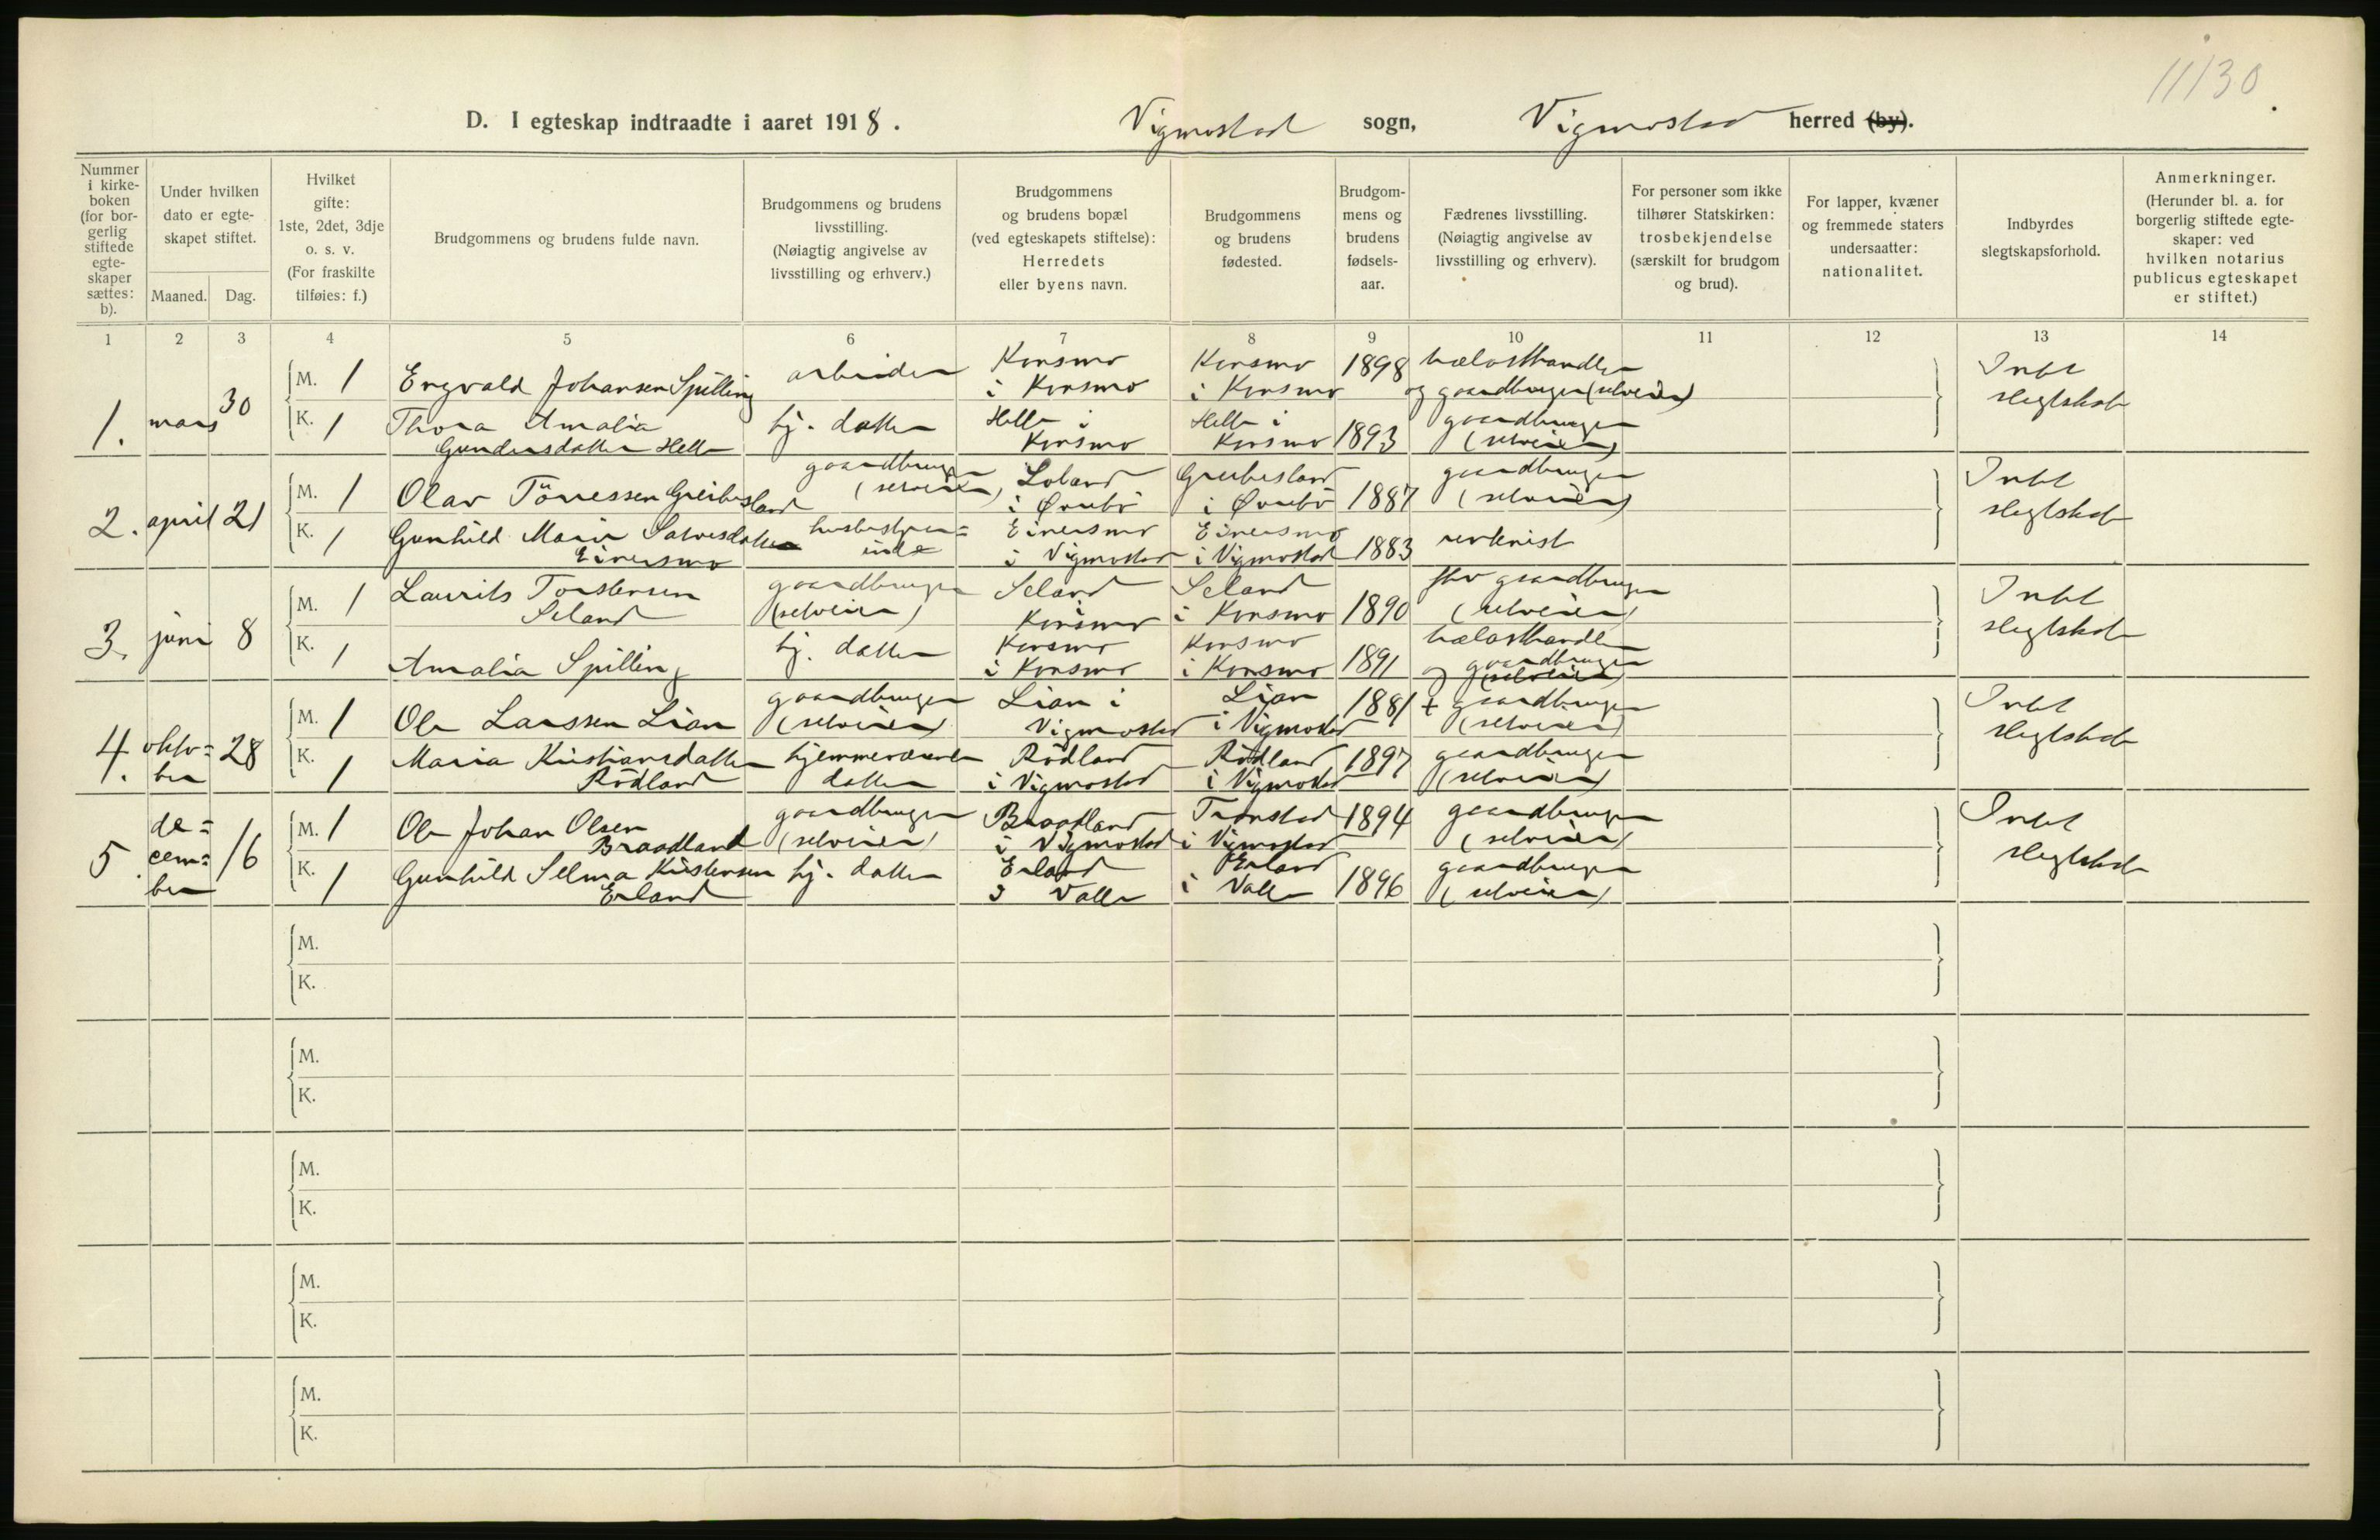 11130.
D. I egteskap indtraadte i aaret 1918. Vigmostad sogn, Vigmostad herred (by).
Nummer i kirke-boken (for bor-gerlig stiftede egte-skaper sættes: b).
Under hvilken dato er egte-skapet stiftet.
Maaned. Dag.
Hvilket gifte: 1ste, 2det, 3dje o. s. v. (For fraskilte tilføies: f.)
Brudgommens og brudens fulde navn.
Brudgommens og brudens livsstilling. (Nøiagtig angivelse av livsstilling og erhverv.)
Brudgommens og brudens bopæl (ved egteskapets stiftelse): Herredets eller byens navn.
Brudgommens og brudens fødested.
Brudgom-mens og brudens fødsels-aar.
Fædrenes livsstilling. (Nøiagtig angivelse av livsstilling og erhverv).
For personer som ikke tilhører Statskirken: trosbekjendelse (særskilt for brudgom og brud).
For lapper, kvæner og fremmede staters undersaatter: nationalitet.
Indbyrdes slegtskapsforhold.
Anmerkninger. (Herunder bl. a. for borgerlig stiftede egte-skaper: ved hvilken notarius publicus egteskapet er stiftet.)
1 2 3 4 5 6 7 8 9 10 11 12 13 14
1. mars 30 M. 1 Engvald Johansen Spilling arbeider Konsmo i Konsmo Konsmo i Konsmo 1898 trælasthandler og gaardbruger (selveier) Intet slegtskab
K. 1 Thora Amalia Gundersdatter Helle hj. datter Helle i Konsmo Helle i Konsmo 1893 gaardbruger (selveier)
2. april 21 M. 1 Olav Tönnessen Greibesland gaardbruger (selveier) Loland i Øvrebö Greibesland i Øvrebö 1887 gaardbruger (selveier) Intet slegtskab
K. 1 Gunhild Marie Salvesdatter Einersmo husbestyrer=inde Einersmo i Vigmostad Einersmo i Vigmostad 1883
3. juni 8 M. 1 Laurits Torstensen Seland gaardbruger (selveier) Seland Konsmo Seland i Konsmo 1890 gaardbruger (selveier) Intet slegtskab
K. 1 Amalia Spilling hj. datter Konsmo i Konsmo Konsmo i Konsmo 1891 trælasthandler og gaardbruger (selveier)
4. okto=ber 28 M. 1 Ole Larssen Lian gaardbruger (selveier) Lian i Vigmostad Lian i Vigmostad 1881 + gaardbruger (selveier) Intet slegtskab
K. 1 Maria Kristiansdatter Rödland hjemmeværende datter Rödland i Vigmostad Rödland i Vigmostad 1897 gaardbruger (selveier)
5. de=cem=ber 16 M. 1 Ole Johan Olsen Braadland gaardbruger (selveier) Braadland i Vigmostad Tronstad i Vigmostad 1894 gaardbruger (selveier) Intet slegtskab
K. 1 Gunhild Selma Kristensen Erland hj. datter Erland i Valle Erland i Valle 1896 gaardbruger (selveier)
M.
K.
M.
K.
M.
K.
M.
K.
M.
K.